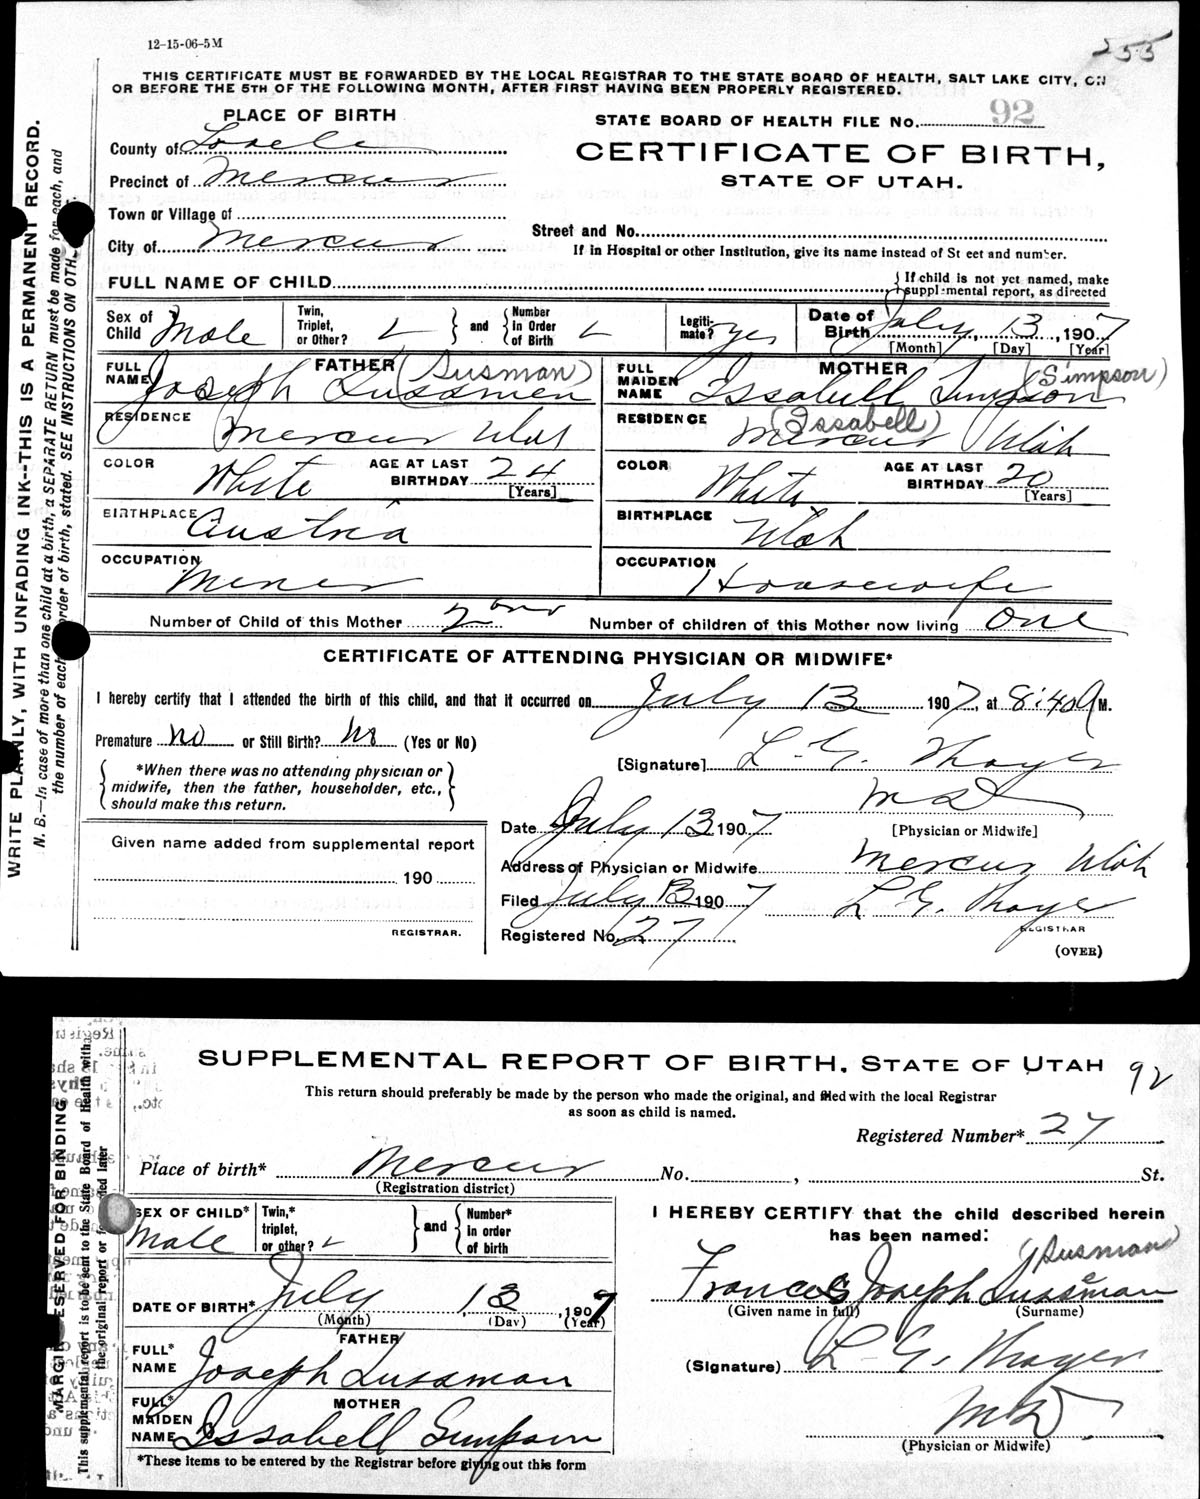 12-15-06-5M
255
THIS CERTIFICATE MUST BE FORWARDED BY THE LOCAL REGISTRAR TO THE STATE BOARD OF HEALTH, SALT LAKE CITY, ON
OR BEFORE THE 5TH OF THE FOLLOWING MONTH, AFTER FIRST HAVING BEEN PROPERLY REGISTERED.
WRITE PLAINLY, WITH UNFADING INK--THIS IS A PERMANENT RECORD.
N. B.—In case of more than one child at a birth, a SEPARATE RETURN must be made for each, and
the number of each order of birth, stated. SEE INSTRUCTIONS ON OTH
PLACE OF BIRTH
STATE BOARD OF HEALTH FILE No. 92
County of Tooele
CERTIFICATE OF BIRTH,
Precinct of Mercur
STATE OF UTAH.
Town or Village of
Street and No.
City of Mercur
If in Hospital or other Institution, give its name instead of St eet and number.
FULL NAME OF CHILD
If child is not yet named, make
supplemental report, as directed
Sex of Child Male
Twin, Triplet, or Other?
and
Number In Order of Birth
Legiti-mate? yes
Date of Birth July 13, 1907
[Month] [Day] [Year]
FATHER (Susman)
FULL NAME Joseph Sussmen
MOTHER (Simpson)
FULL MAIDEN NAME Issabell Simpson
RESIDENCE Mercur Utah
(Issabell)
RESIDENCE Mercur Utah
COLOR White AGE AT LAST BIRTHDAY 24 [Years]
COLOR White AGE AT LAST BIRTHDAY 20 [Years]
BIRTHPLACE Austria
BIRTHPLACE Utah
OCCUPATION Miner
OCCUPATION Housewife
Number of Child of this Mother 2nd Number of children of this Mother now living One
CERTIFICATE OF ATTENDING PHYSICIAN OR MIDWIFE*
I hereby certify that I attended the birth of this child, and that it occurred on July 13 1907, at 8:40 A M.
Premature no or Still Birth? no (Yes or No)
[Signature] L. G. Thayer
*When there was no attending physician or
midwife, then the father, householder, etc.,
should make this return.
MD
Date July 13 1907
[Physician or Midwife]
Given name added from supplemental report
190
REGISTRAR.
Address of Physician or Midwife Mercur Utah
Filed July 13 1907 L. G. Thayer
REGISTRAR
Registered No. 27
(OVER)
SUPPLEMENTAL REPORT OF BIRTH, STATE OF UTAH 92
This return should preferably be made by the person who made the original, and filed with the local Registrar
as soon as child is named.
Registered Number* 27
MARGIN RESERVED FOR BINDING
This supplemental report is to be sent to the State Board of Health with
the original report or f led later
Place of birth* Mercur No. , St.
(Registration district)
SEX OF CHILD* Male
Twin,* triplet, or other?
and
Number* in order of birth
I HEREBY CERTIFY that the child described herein
has been named:
(Susman)
Frances Joseph Sussman
(Given name in full) (Surname)
DATE OF BIRTH* July 13, 1907
(Month) (Day) (Year)
FATHER
FULL* NAME Joseph Sussman
(Signature) L. G. Thayer
MD
(Physician or Midwife)
MOTHER
FULL* MAIDEN NAME Issabell Simpson
*These items to be entered by the Registrar before giving out this form